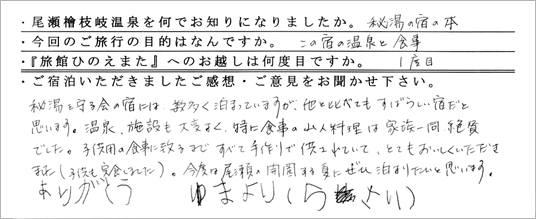 ・尾瀬檜枝岐温泉を何でお知りになりましたか。 秘湯の宿の本
・今回のご旅行の目的はなんですか。 この宿の温泉と食事
・『旅館ひのえまた』へのお越しは何度目ですか。 1度目
・ご宿泊いただきましたご感想・ご意見をお聞かせ下さい。
秘湯を守る会の宿には、数多く泊まっていますが、他と比べてもすばらしい宿だと
思います。温泉、施設も大変よく、特に食事の山人料理は家族一同絶賛
でした。子供用の食事に致るまですべて手作りで供されていて、とてもおいしくいただき
ました(子供も完食しました)。今度は尾瀬の開園する夏にぜひ泊まりたいと思います。
ありがとう ゆまより